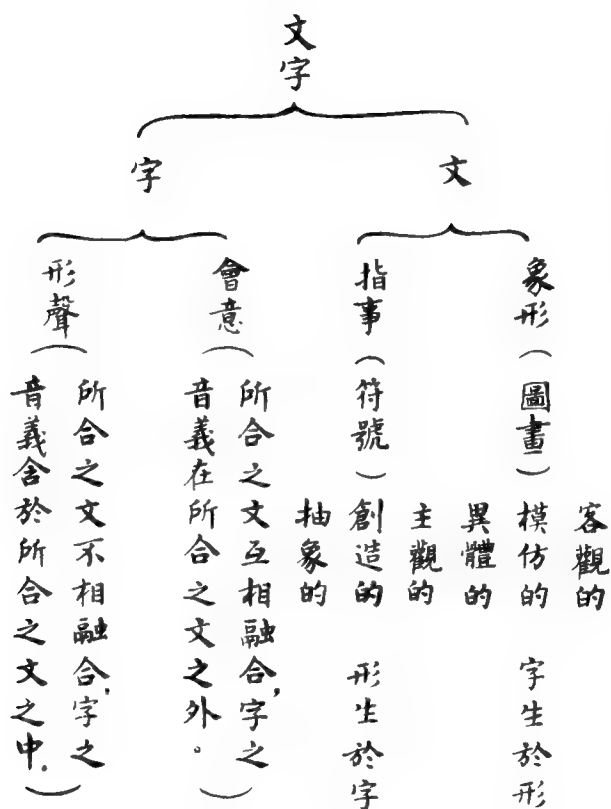 文字
文
字
象形（圖畫）
客觀的
模仿的
異體的
字生於形
指事（符號）
主觀的
創造的
抽象的
形生於字
會意（
所合之文互相融合，字之
音義在所合之文之外。
）
形聲（
所合之文不相融合，字之
音義舍於所合之文之中．
）